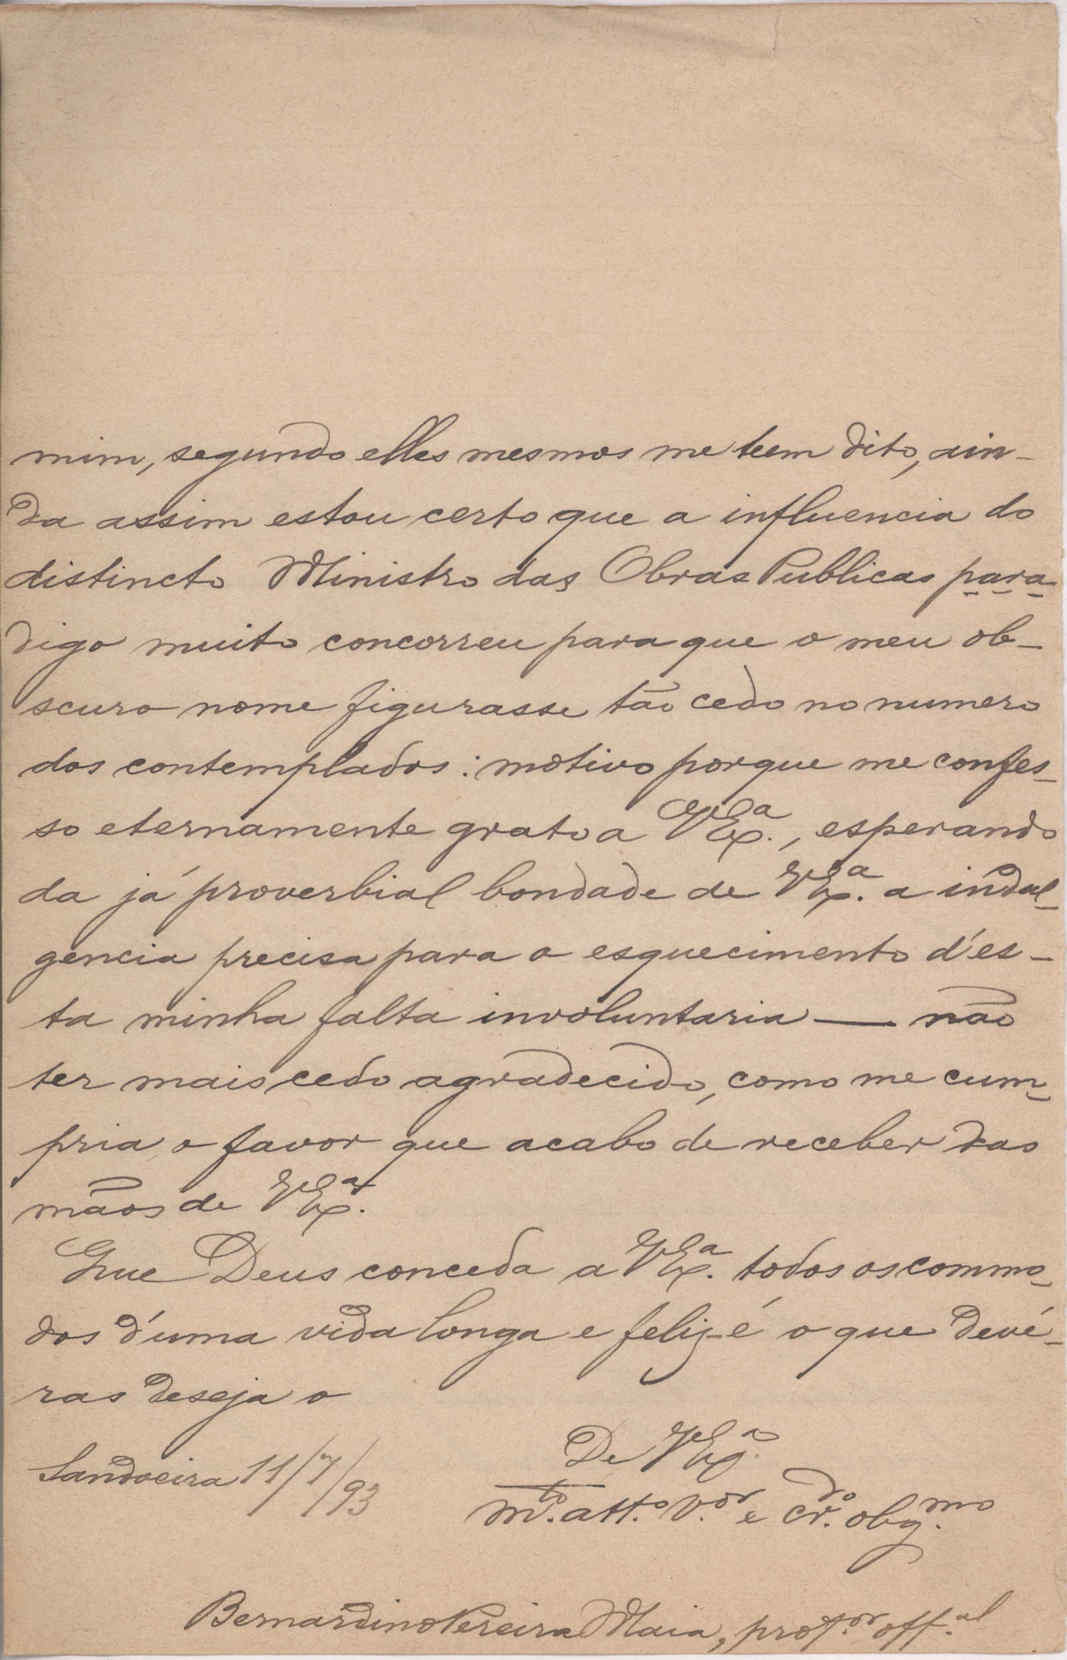 mim, segundo elles mesmos me teem dito, ain-
da assim estou certo que a influencia do
distincto Ministro das Obras Publicas para
digo muito concorreu para que o meu ob-
scuro nome figurasse tão cedo no numero
dos contemplados: motivo porque me confes-
so eternamente grato a V Ex.ª, esperando
da já proverbial bondade de V Ex.ª a indul-
gencia precisa para o esquecimento d'es-
ta minha falta involuntaria — não
ter mais cedo agradecido, como me cum-
pria, o favor que acabo de receber das
mãos de V Ex.ª
Que Deus conceda a V Ex.ª todos os commo-
dos d'uma vida longa e feliz é o que devé-
ras deseja o
De V Ex.ª
Sandoeira 11/7/93
m.to att.o v.or e cr.do obg.mo
Bernardino Pereira Maia, prof.or off.al